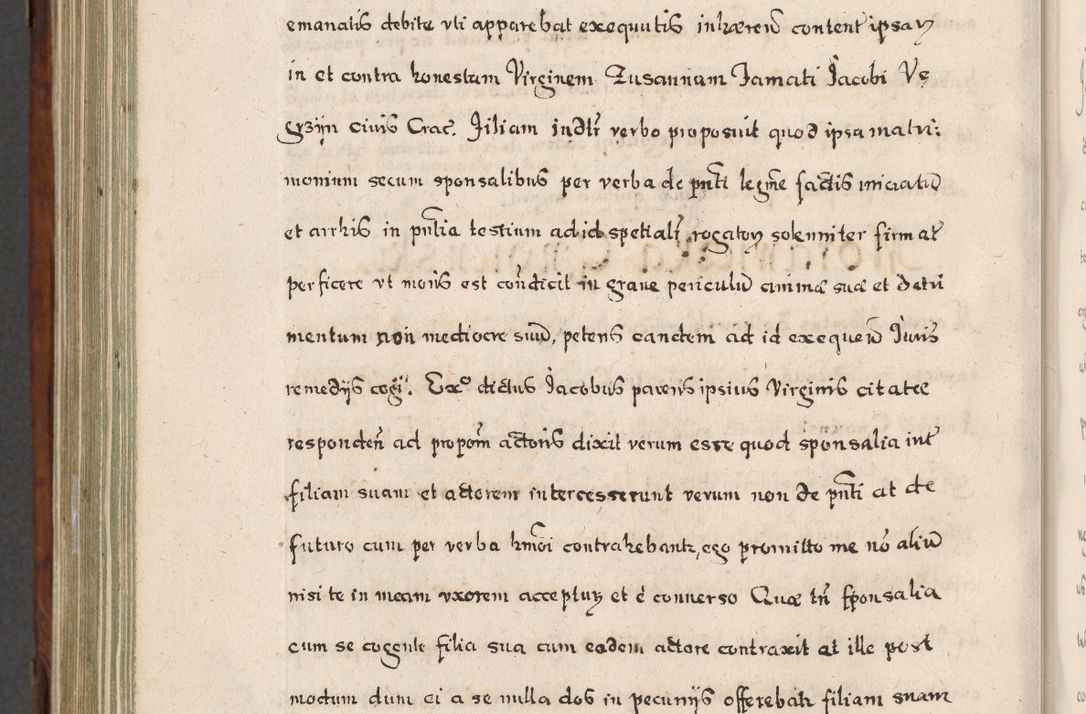 emanatis debite vti apparebat exequutis inhæreñ content ipsaȝ
in et contra honestam Virginem Zusannam Famati Jacobi Vę
grzÿn ciuis Crac. Filiam indtr verbo proposuit quod ipsa matri:
monium secum sponsalibus per verba de pnti legme factis iniciatū
et arrhis in pntia testium ad id spetialr rogatoȝ solenniter firmat
perficere vt moris est condicit in graue periculū animæ suæ et detri
mentum non mediocre suū, petens eandem ad id exequeñ Juris
remedÿs cogi. Ex° dictus Jacobus parens ipsius Virginis citatæ
responden ad propom actoris dixit verum esse quod sponsalia int
filiam suam et actorem intercesserunt verum non de pnti at de
futuro cum per verba hmoi contrahebantr, ego promitto me nō aliū
nisi te in meam vxorem accepturȝ et é conuerso Quæ tñ sponsalia
cum se cogente filia sua cum eadem actore contraxit at ille post
modum dum ei a se nulla dos in pecunÿs offerebatr filiam suam